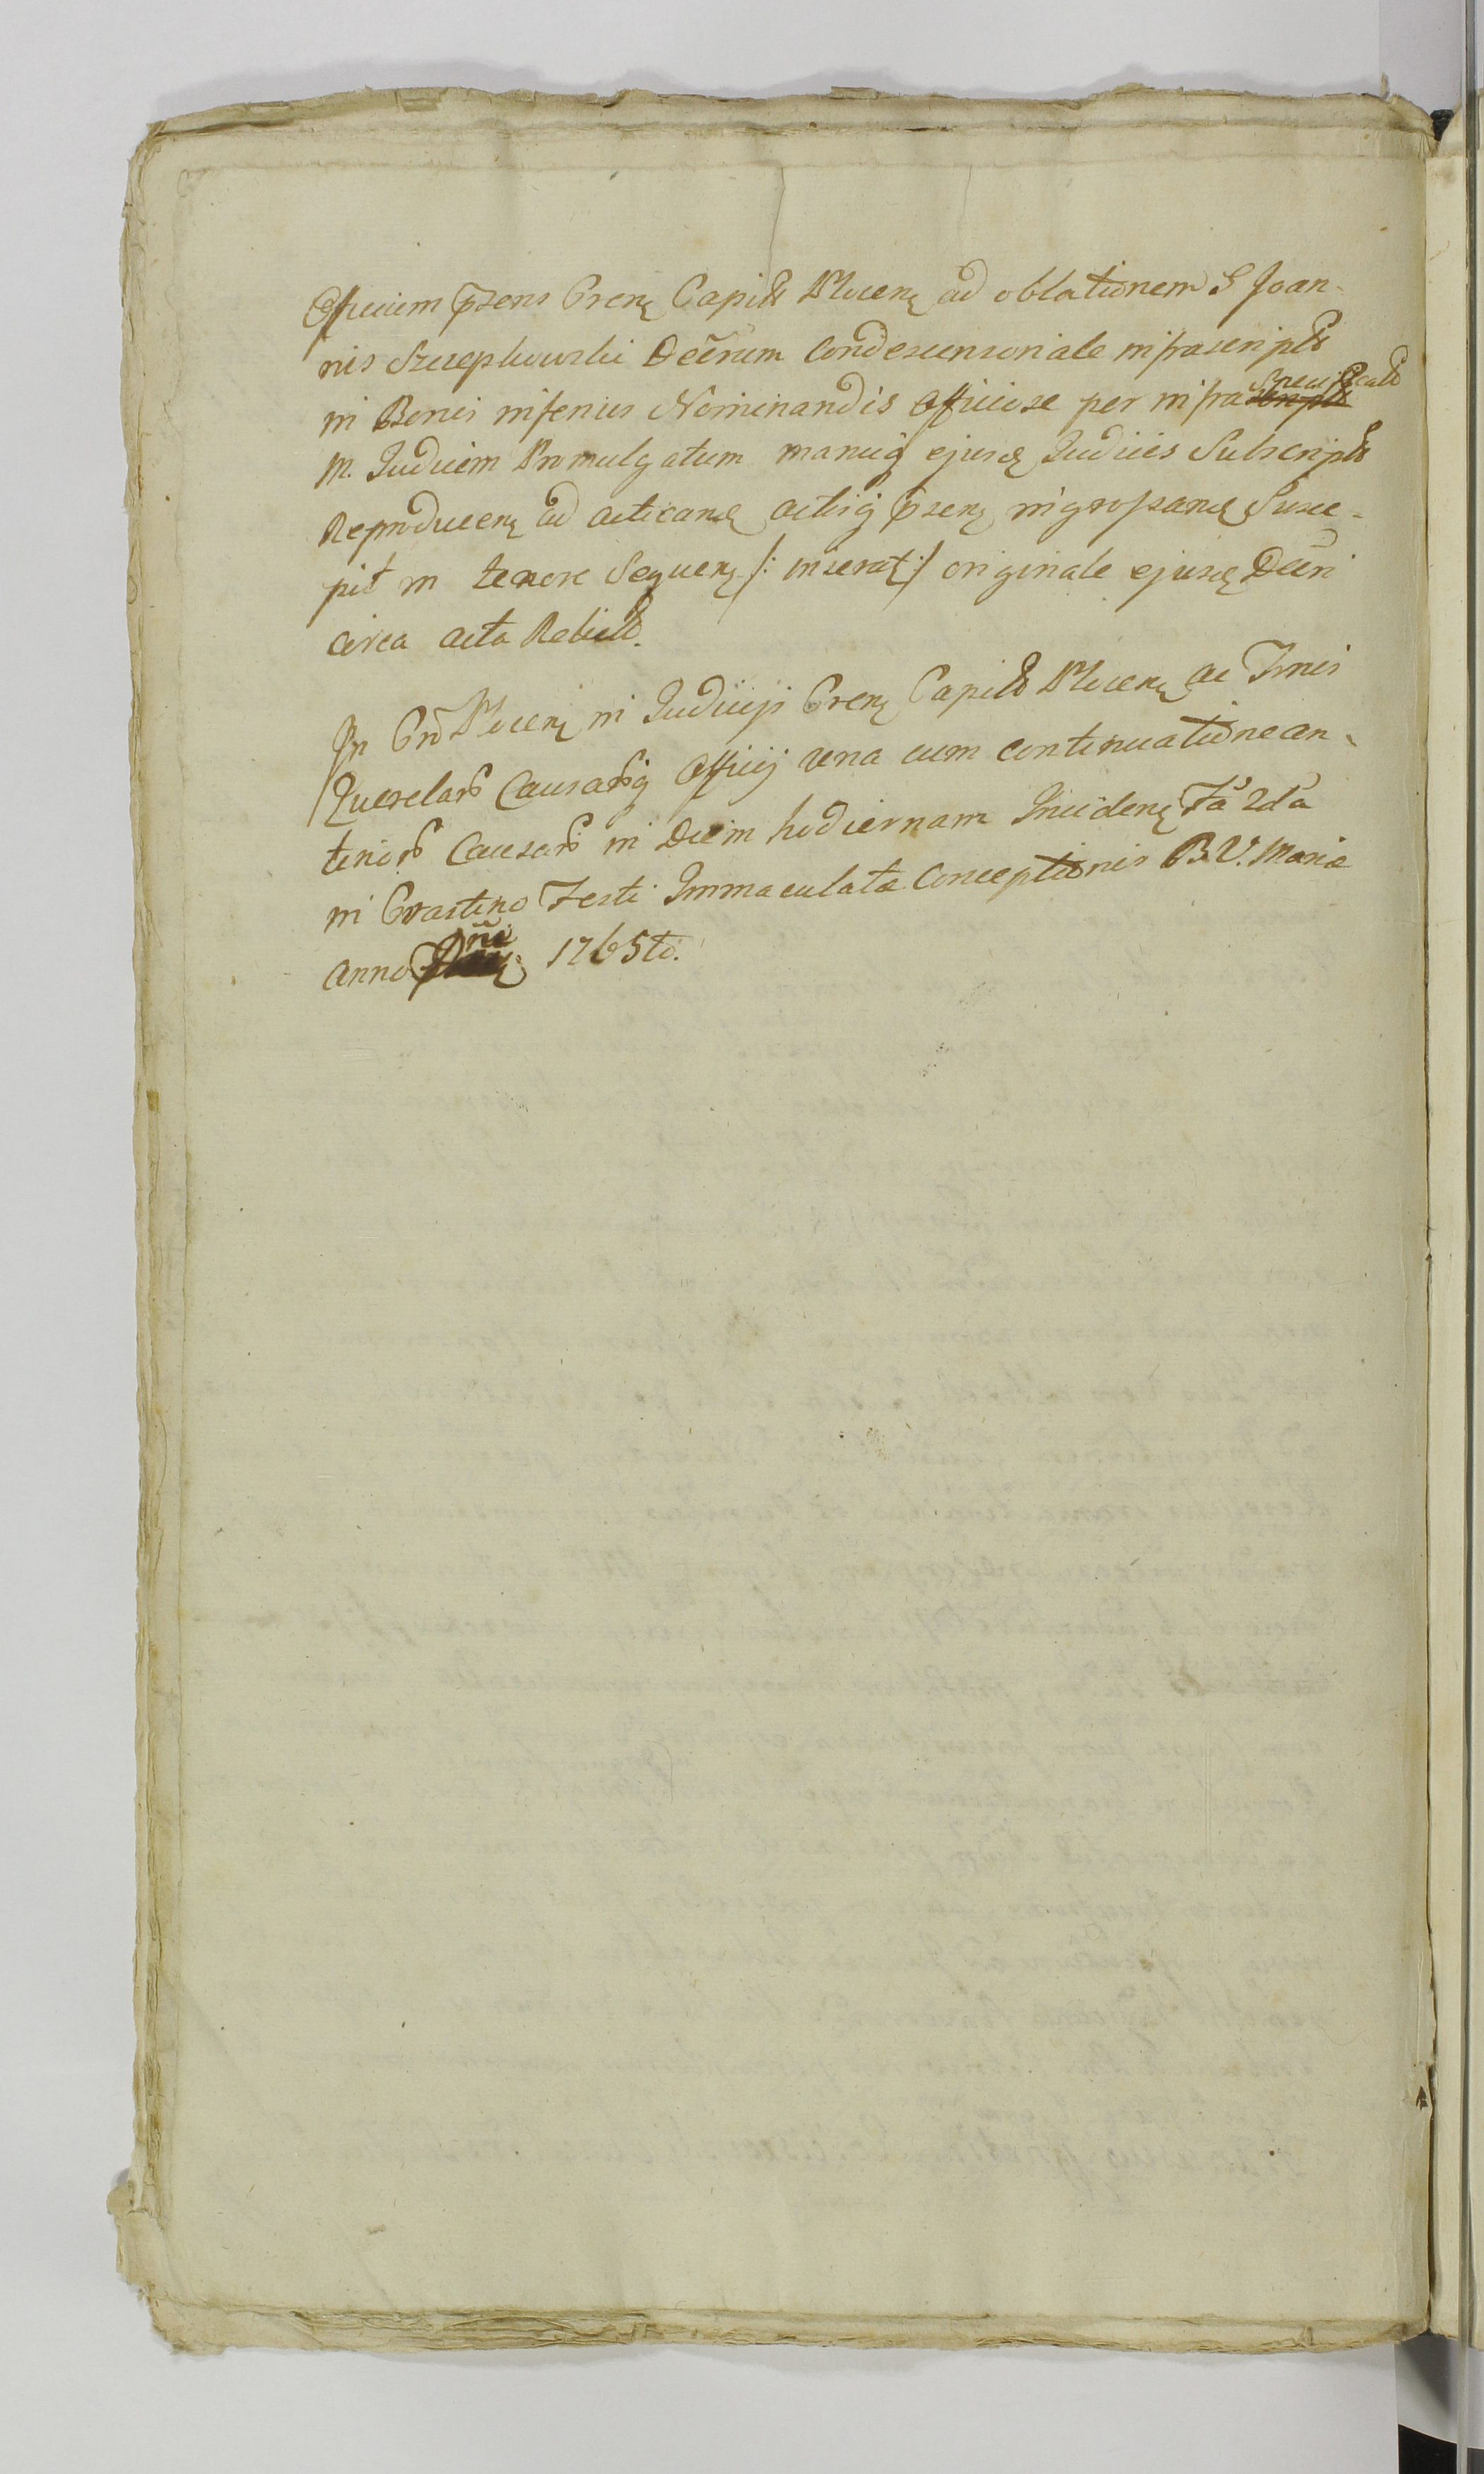 Officium p̄sens Crenę Capitł Plocenę ad oblationem S Joan-
nis Szczepkowski Decr̄um Condescensoriale infrascriptł
in Bonis inferius Nominandis Officiose per infra specificatł
M. Judicem Promulgatum manuq̨ ejusdę Judicis Subscriptł
Reproducenę ad acticandę actisq̨ p̄senę ingrossandę Susce-
pit in tenore Sequenę /: inserat̨ :/ originale ejusdę Decr̄i
circa acta Relictł.
In Crō Plocenę in Judicijs Crenę Capitł Plocenę ac Trnis
Querelarł Causarłq̨ Officij una cum continuatione an-
teriorł Causarł in Diem hodiernam Incidenę Fā 2dā
in Crastino Festi Immaculatæ Conceptionis B.V. Mariæ
anno Dn̄i 1765tō.